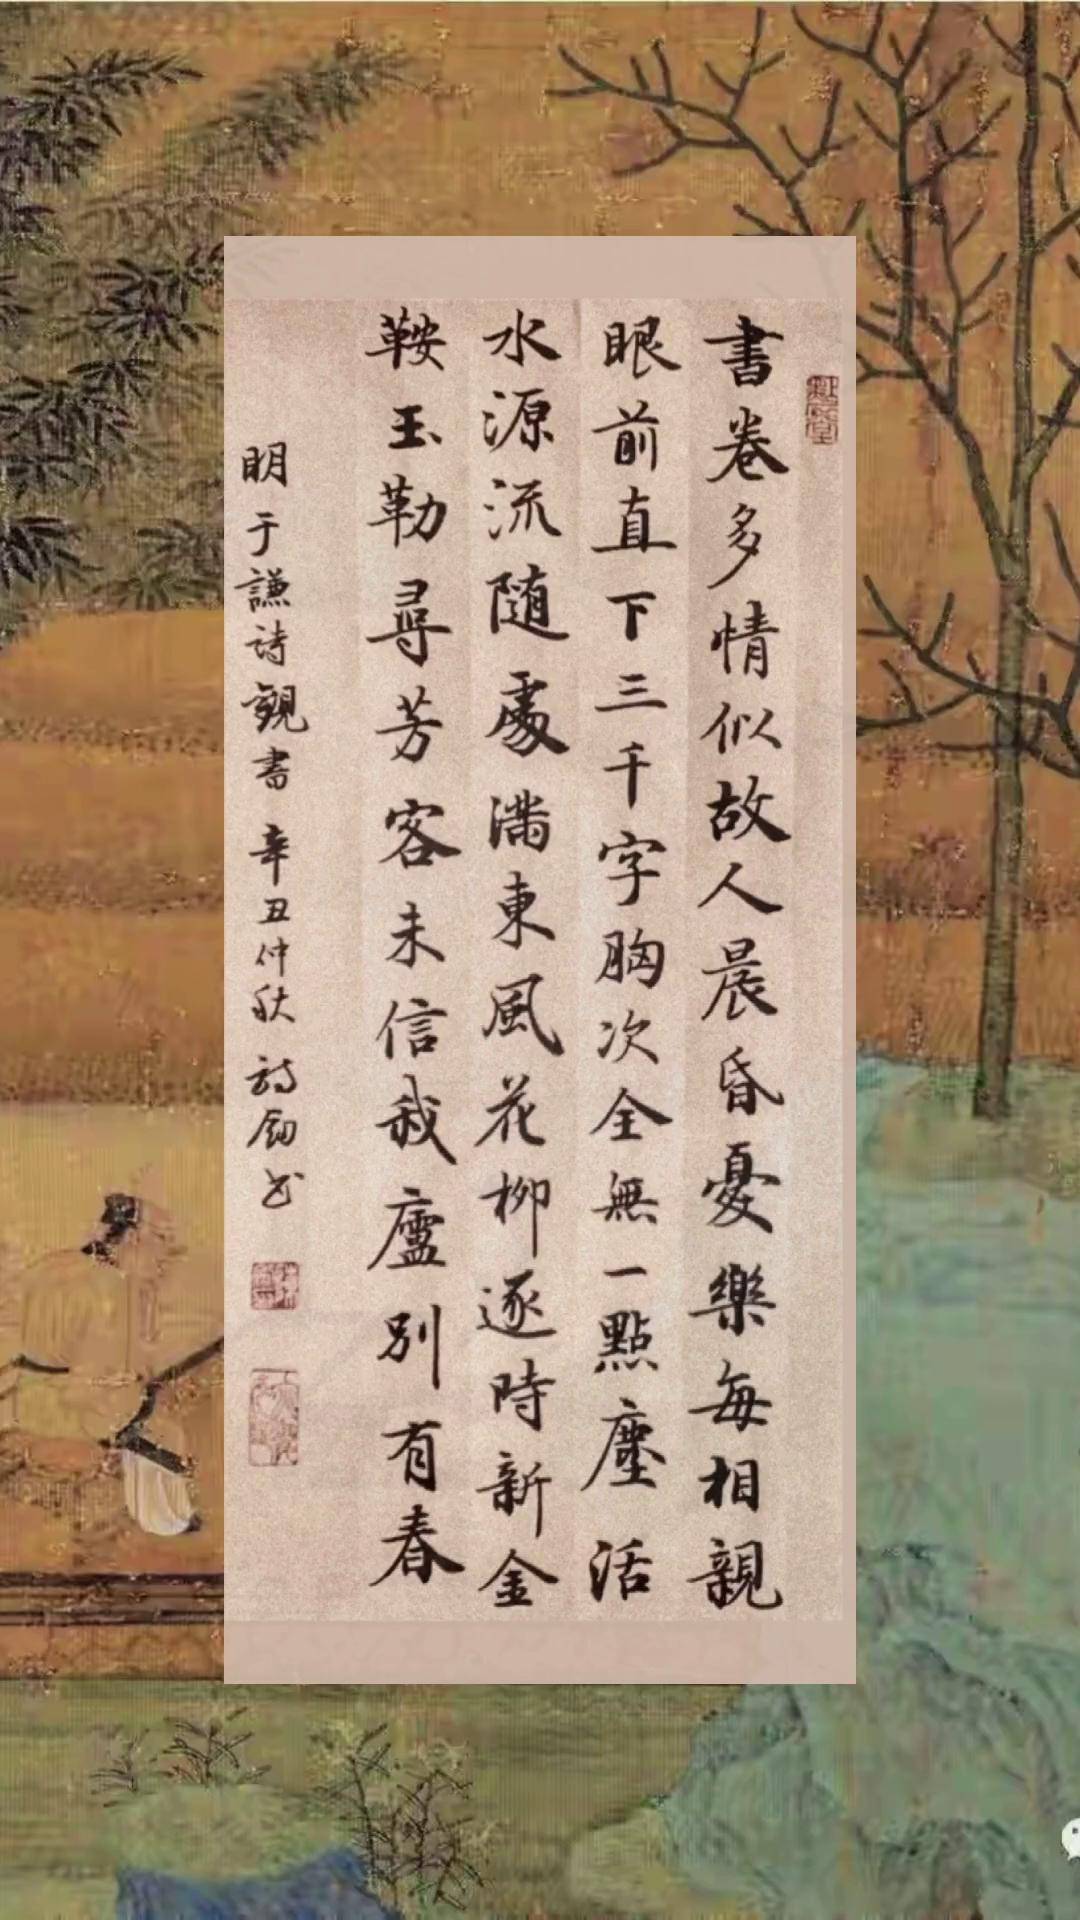 書卷多情似故人晨昏憂樂每相親
眼前直下三千字胸次全無一點塵活
水源流隨處滿東風花柳逐時新金
鞍玉勒尋芳客未信我廬別有春
明于謙詩觀書 辛丑仲秋 詩劍書